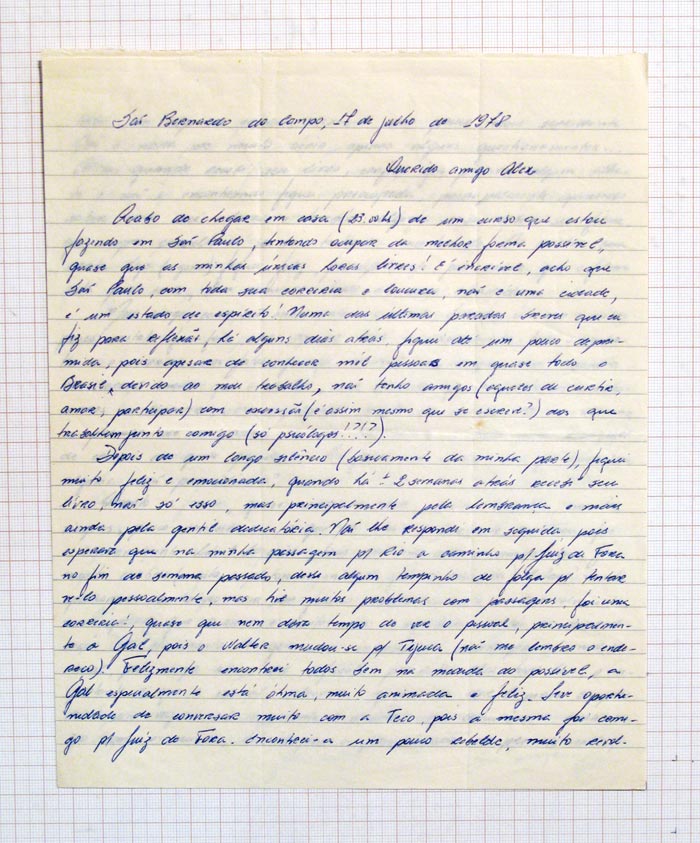 São Bernardo do Campo, 17 de julho de 1978
Querido amigo Alex
Acabo de chegar em casa (23:00hs) de um curso que estou
fazendo em São Paulo, tentando ocupar da melhor forma possível,
quase que as minhas únicas horas livres! É incrível, acho que
São Paulo, com toda sua correria e loucura, não é uma cidade,
é um estado de espírito! Numa das últimas paradas que eu
fiz para reflexão, há alguns dias atrás, fiquei até um pouco depri-
mida, pois apesar de conhecer mil pessoas em quase todo o
Brasil, devido ao meu trabalho, não tenho amigos (aqueles de curtir,
amar, participar) com excessão (é assim mesmo que se escreve?) dos que
trabalham junto comigo (só psicólogos!?!?).
Depois de um longo silêncio (basicamente da minha parte), fiquei
muito feliz e emocionada, quando há ± 2 semanas atrás recebi seu
livro, não só isso, mas principalmente pela lembrança e mais
ainda pela gentil dedicatória. Não lhe respondi em seguida pois
esperava que na minha passagem p/ Rio a caminho p/ Juiz de Fora
no fim de semana passado, desse algum tempinho de folga p/ tentar
vê-lo pessoalmente, mas tive muitos problemas com passagens, foi uma
correria!, quase que nem dava tempo de ver o pessoal, principalmen-
te a Gal, pois o Walter mudou-se p/ Tijuca (não me lembro o ende-
reço). Felizmente encontrei todos bem na medida do possível, a
Gal especialmente está ótima, muito animada e feliz. Tive oportu-
nidade de conversar muito com a Teco, pois a mesma foi comi-
go p/ Juiz de Fora. Encontrei-a um pouco rebelde, muito revol-